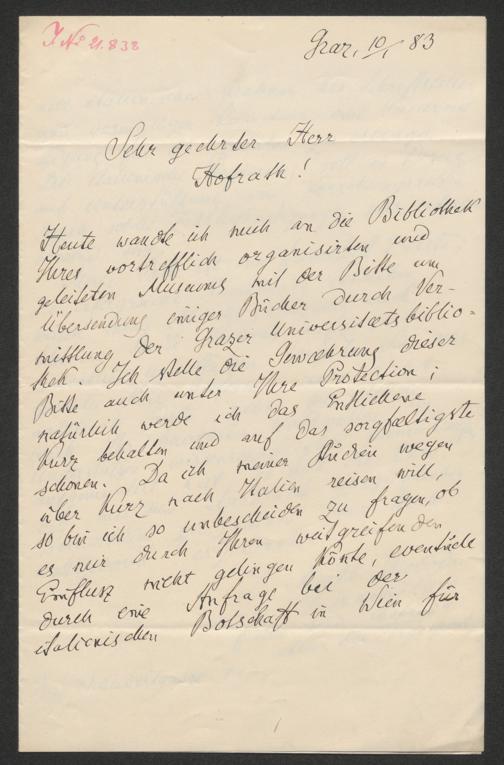 J No 21.838
Graz, 10/1 83
Sehr geehrter Herr
Hofrath!
Heute wandte ich mich an die Bibliothek
Ihres vortrefflich organisirten und
geleiteten Museums mit der Bitte um
Übersendung einiger Bücher durch Ver-
mittlung der Grazer Universitætsbiblio-
thek. Ich stelle die Gewæhrung dieser
Bitte auch unter Ihre Protection;
natürlich werde ich das Entliehene
kurz behalten und auf das sorgfæltigste
schonen. Da ich meiner Studien wegen
über Kurz nach Italien reisen will,
so bin ich so unbescheiden zu fragen, ob
es mir durch Ihren weitgreifenden
Einfluss nicht gelingen könte, eventuele
durch eine Anfrage bei der
italienischen Botschaft in Wien für